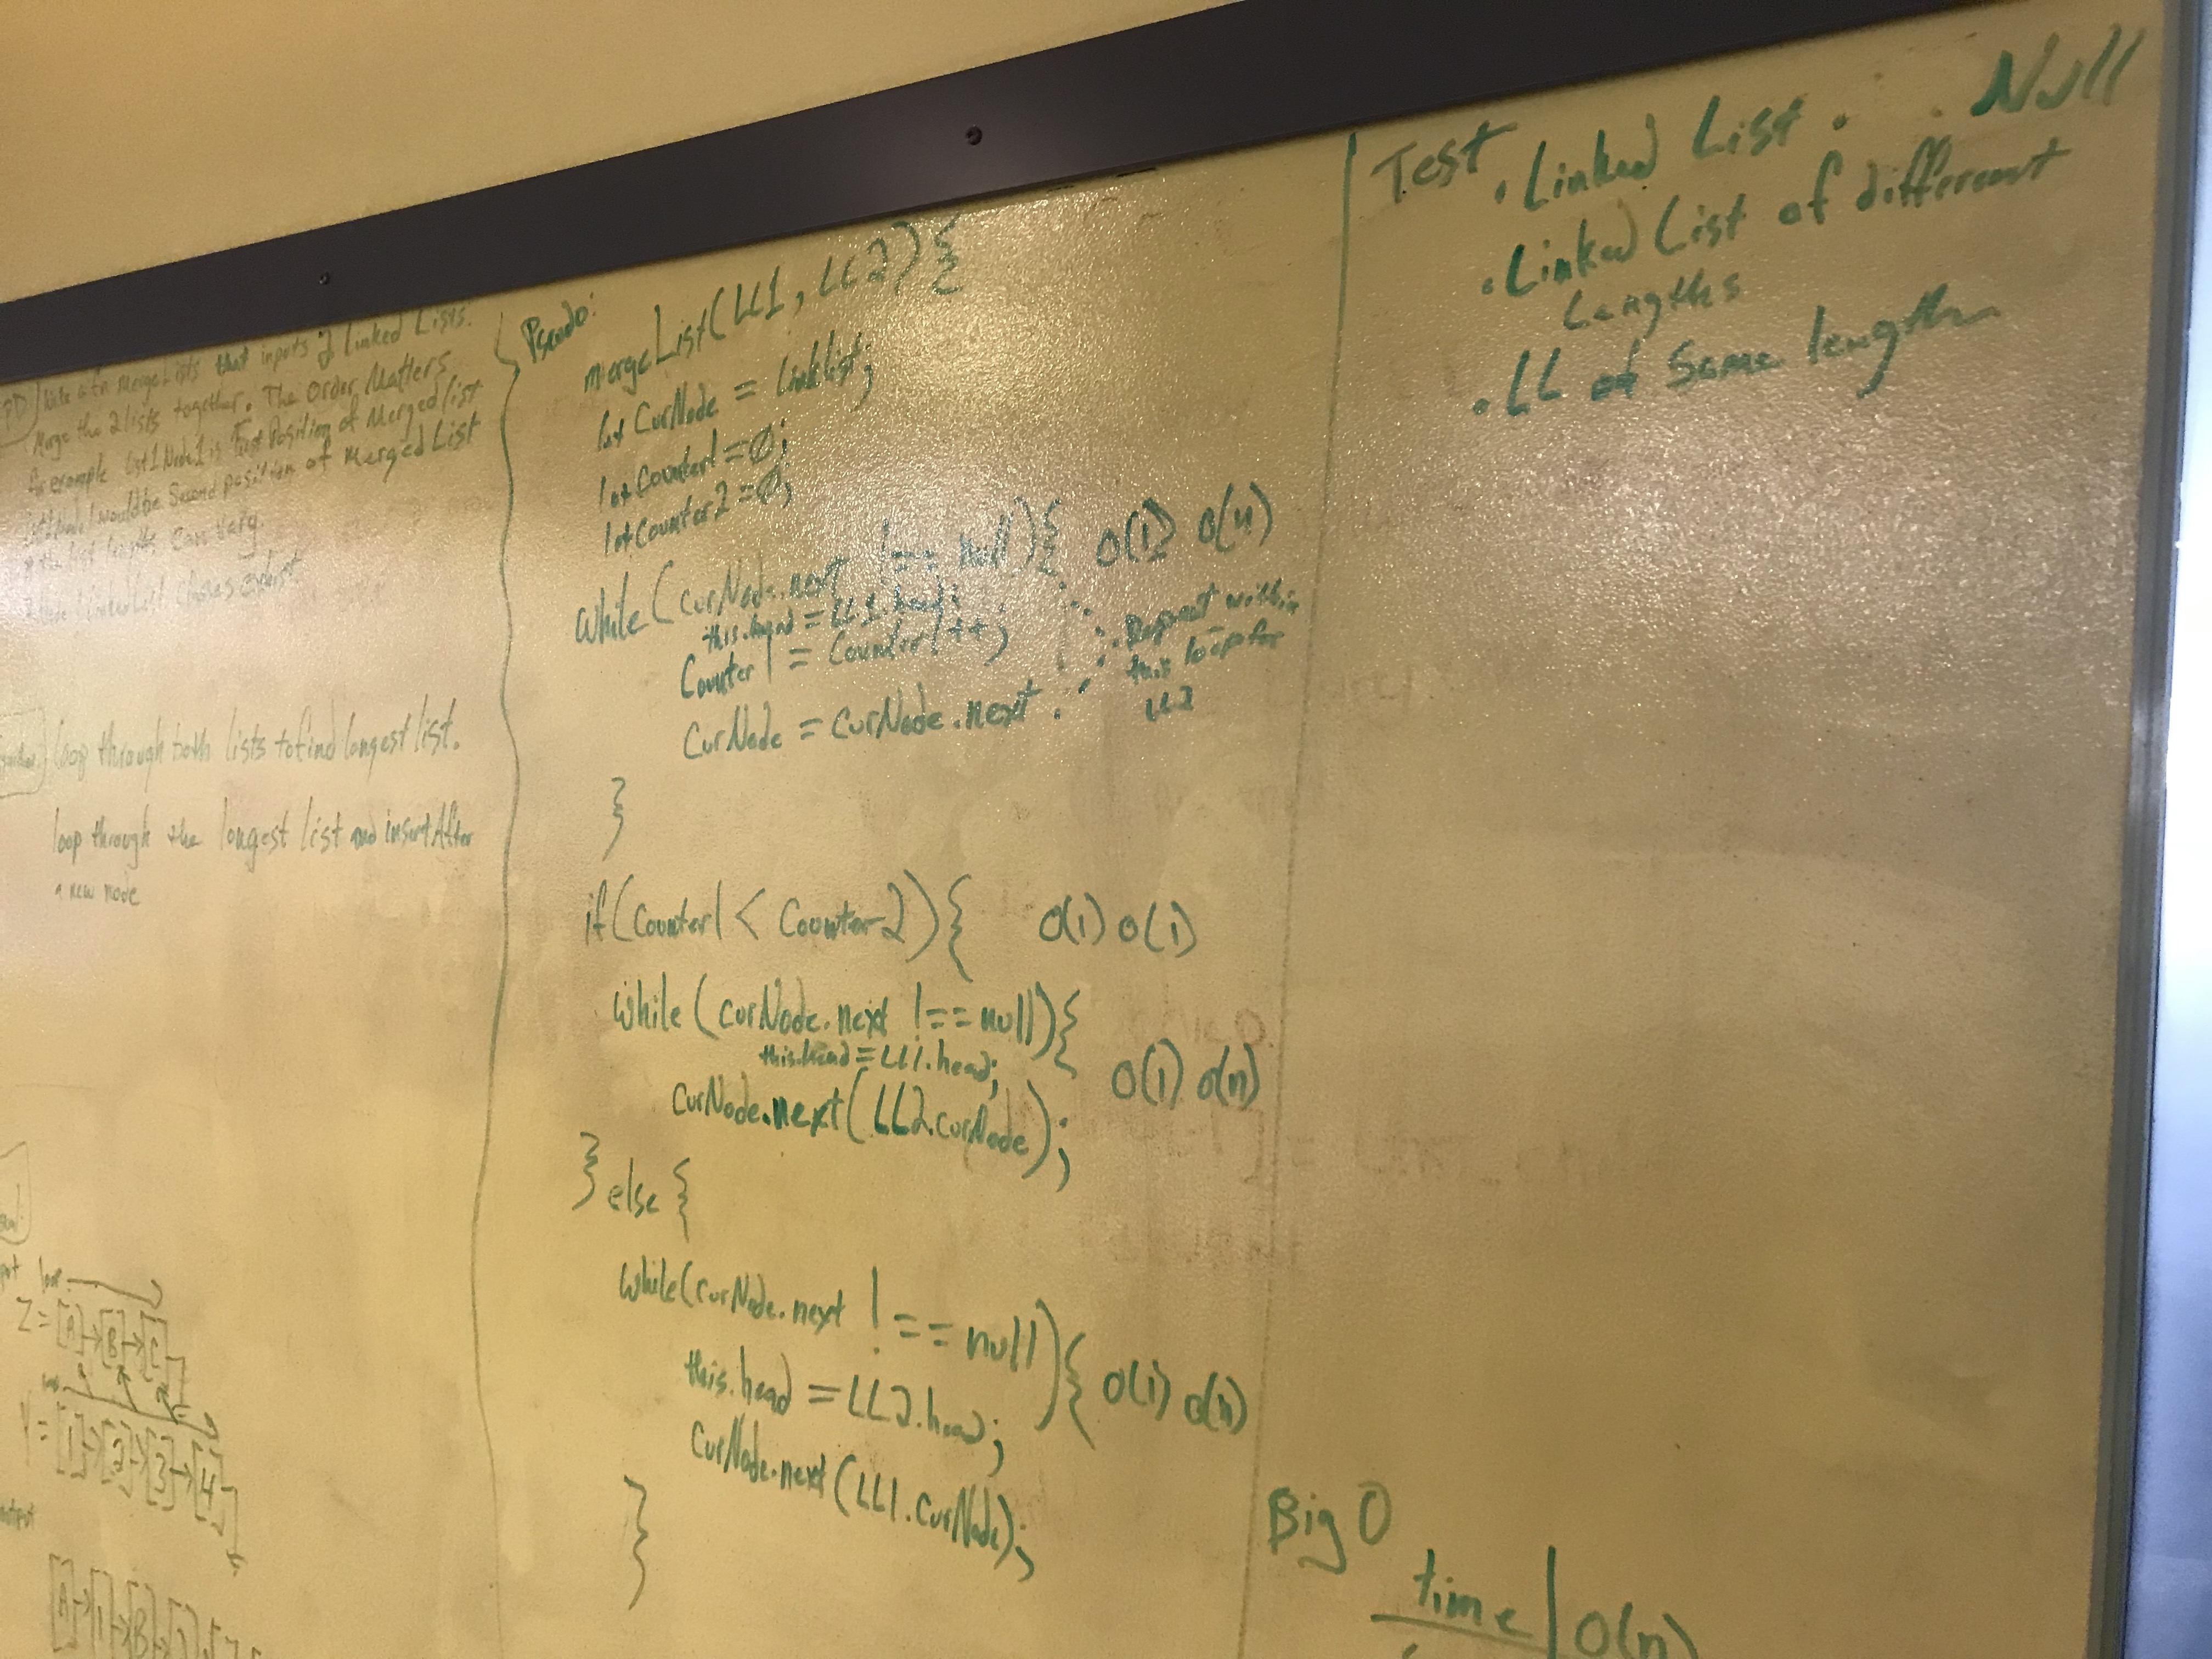 PD
Write a fn mergeLists that inputs 2 linked Lists.
Merge the 2 lists together. The Order Matters
example List 1 Node 1 is First Position of Merged list
would be Second position of Merged List
the list lengths can vary.
Linked List
loop through both lists to find longest list.
loop through the longest list and insertAfter
a new node
loop
Z = [A]→[B]→[C]
Y = [1]→[2]→[3]→[4]
output
[A]→[1]→[B]
Pseudo:
mergeList(LL1, LL2) {
let CurNode = linklist;
let Counter1 = 0;
let Counter2 = 0;
while (curNode.next !== null) { O(1) O(n)
this.head = LL1.head;
Counter1 = Counter1++;
CurNode = CurNode.next.
Repeat within
this loop for
LL2
}
if (Counter1 < Counter2) { O(1) O(1)
while (curNode.next !== null) {
this.head = LL1.head;
O(1) O(n)
curNode.next(LL2.curNode);
} else {
while (curNode.next !== null) {
this.head = LL2.head; O(1) O(n)
curNode.next(LL1.curNode);
}
Test . Linked List . . Null
. Linked List of different
Lengths
. LL of Same length
Big O
time | O(n)